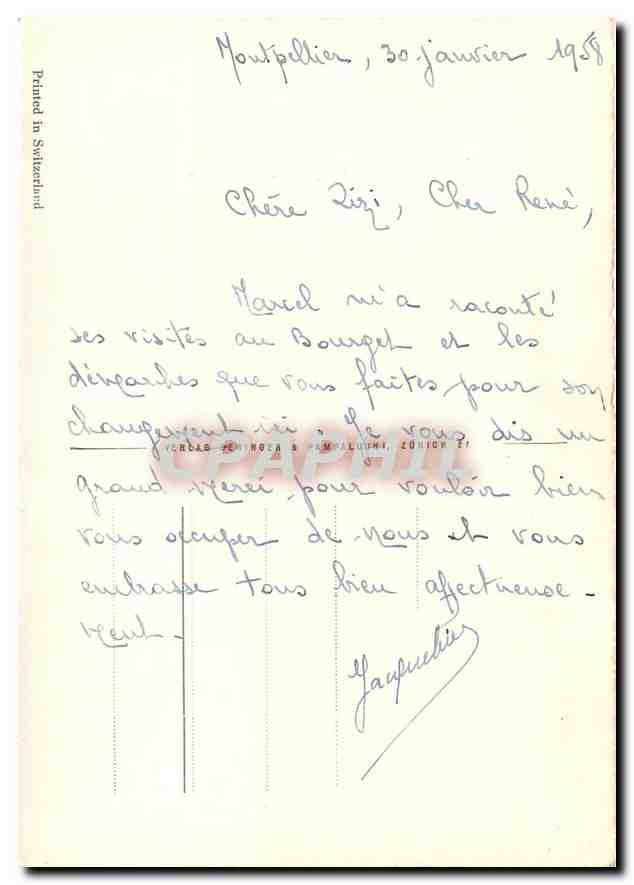 Montpellier, 30 janvier 1958
Printed in Switzerland
Chère Zizi, Cher René,
Marcel m'a raconté
ses visites au Bourget et les
démarches que vous faites pour son
changement ici. Je vous dis un
VERLAG BENINGER & PAMPALUCHI, ZÜRICH 27
CPAPHIL
grand merci pour vouloir bien
vous occuper de nous et vous
embrasse tous bien affectueuse-
ment.
Jacqueline